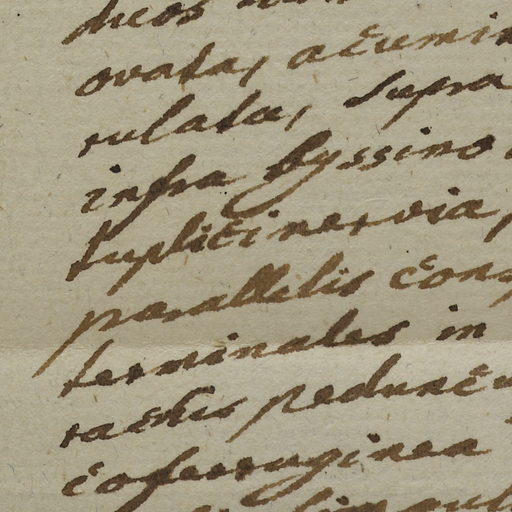 ovata, acumin
rulata, supra
infra byssino
tuplicinervia,
parallelis con
terminales in
rachis peduncu
coferruginea